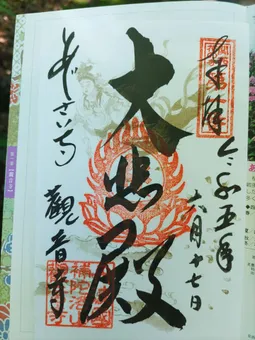 奉拝
令和五年
六月十七日
大悲殿
あじさい寺
觀音寺